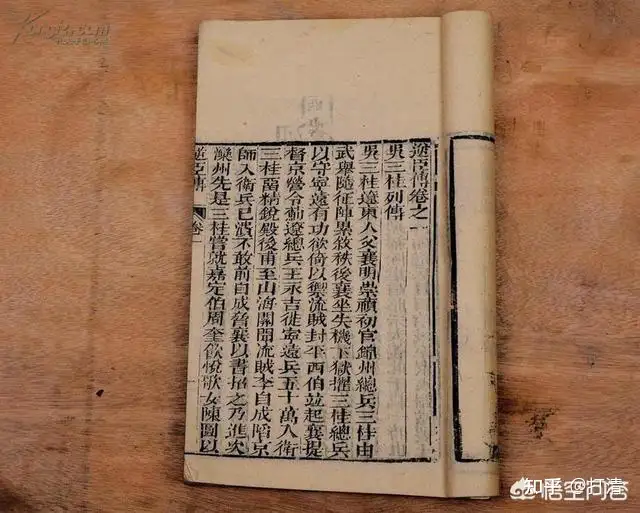 逆臣傳卷之一
吳三桂列傳
吳三桂遼東人父襄明崇禎初官錦州總兵三桂由
武舉隨征陣累敘秩後襄坐失機下獄擢三桂總兵
以守寧遠有功欲倚以禦流賊封平西伯竝起襄提
督京營令遼總兵王永吉徙寧遠兵五十萬入衛
三桂精銳殿後甫至山海關聞流賊李自成陷京
師入衛兵已潰不敢前自成脅襄以書招之乃進次
灤州先是三桂嘗就嘉定伯周奎飲悅歌女陳圓以
逆臣傳 卷一
知乎 @扫清
悟空问答